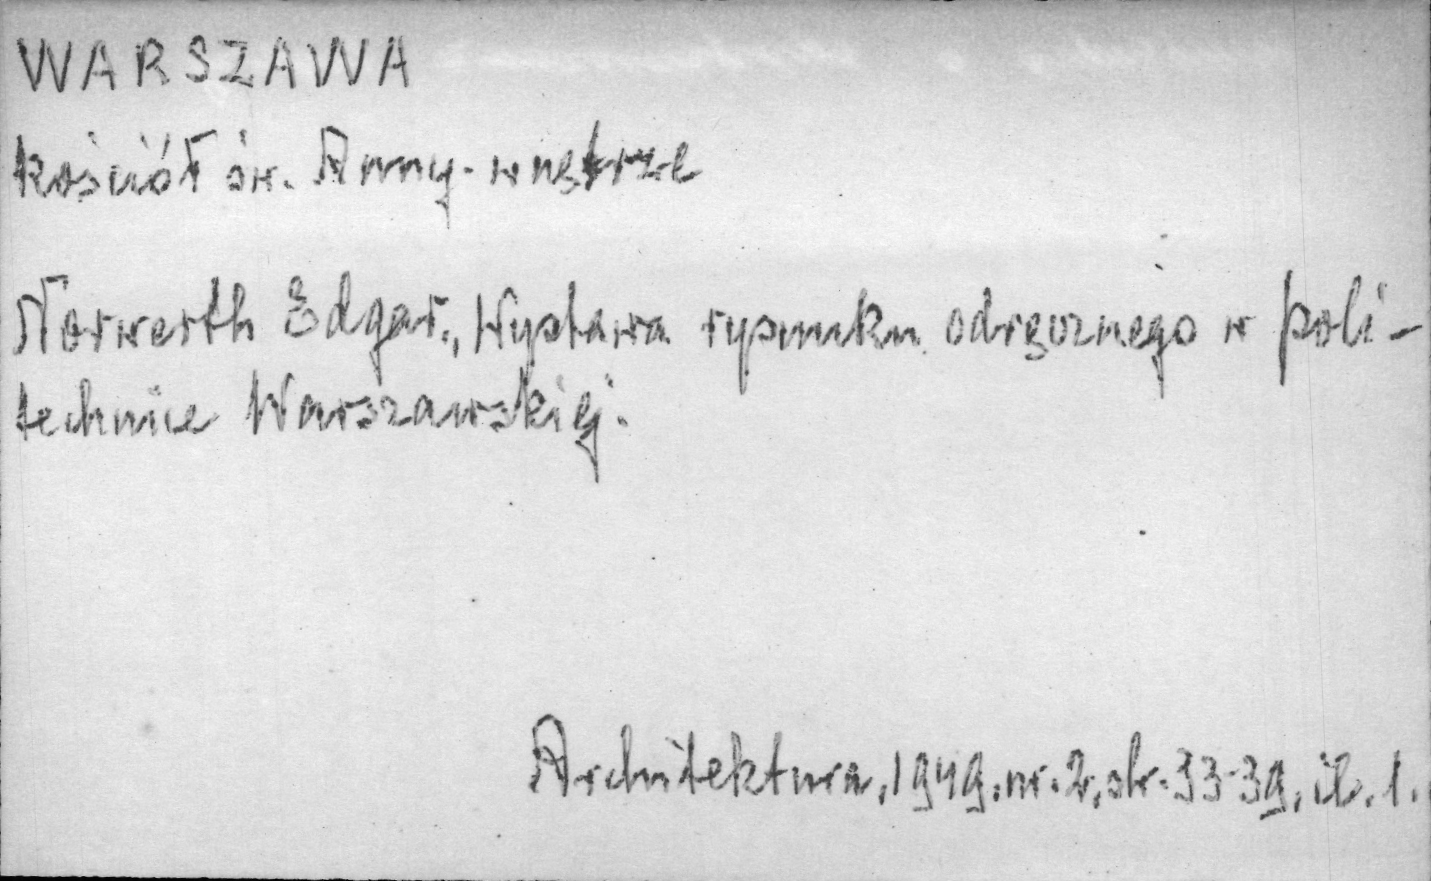 WARSZAWA
kościół św. Anny - wnętrze
Norwerth Edgar., Wystawa rysunku odręcznego w poli-
technice Warszawskiej.
Architektura, 1949, nr. 2, str. 33-39, il. 1.